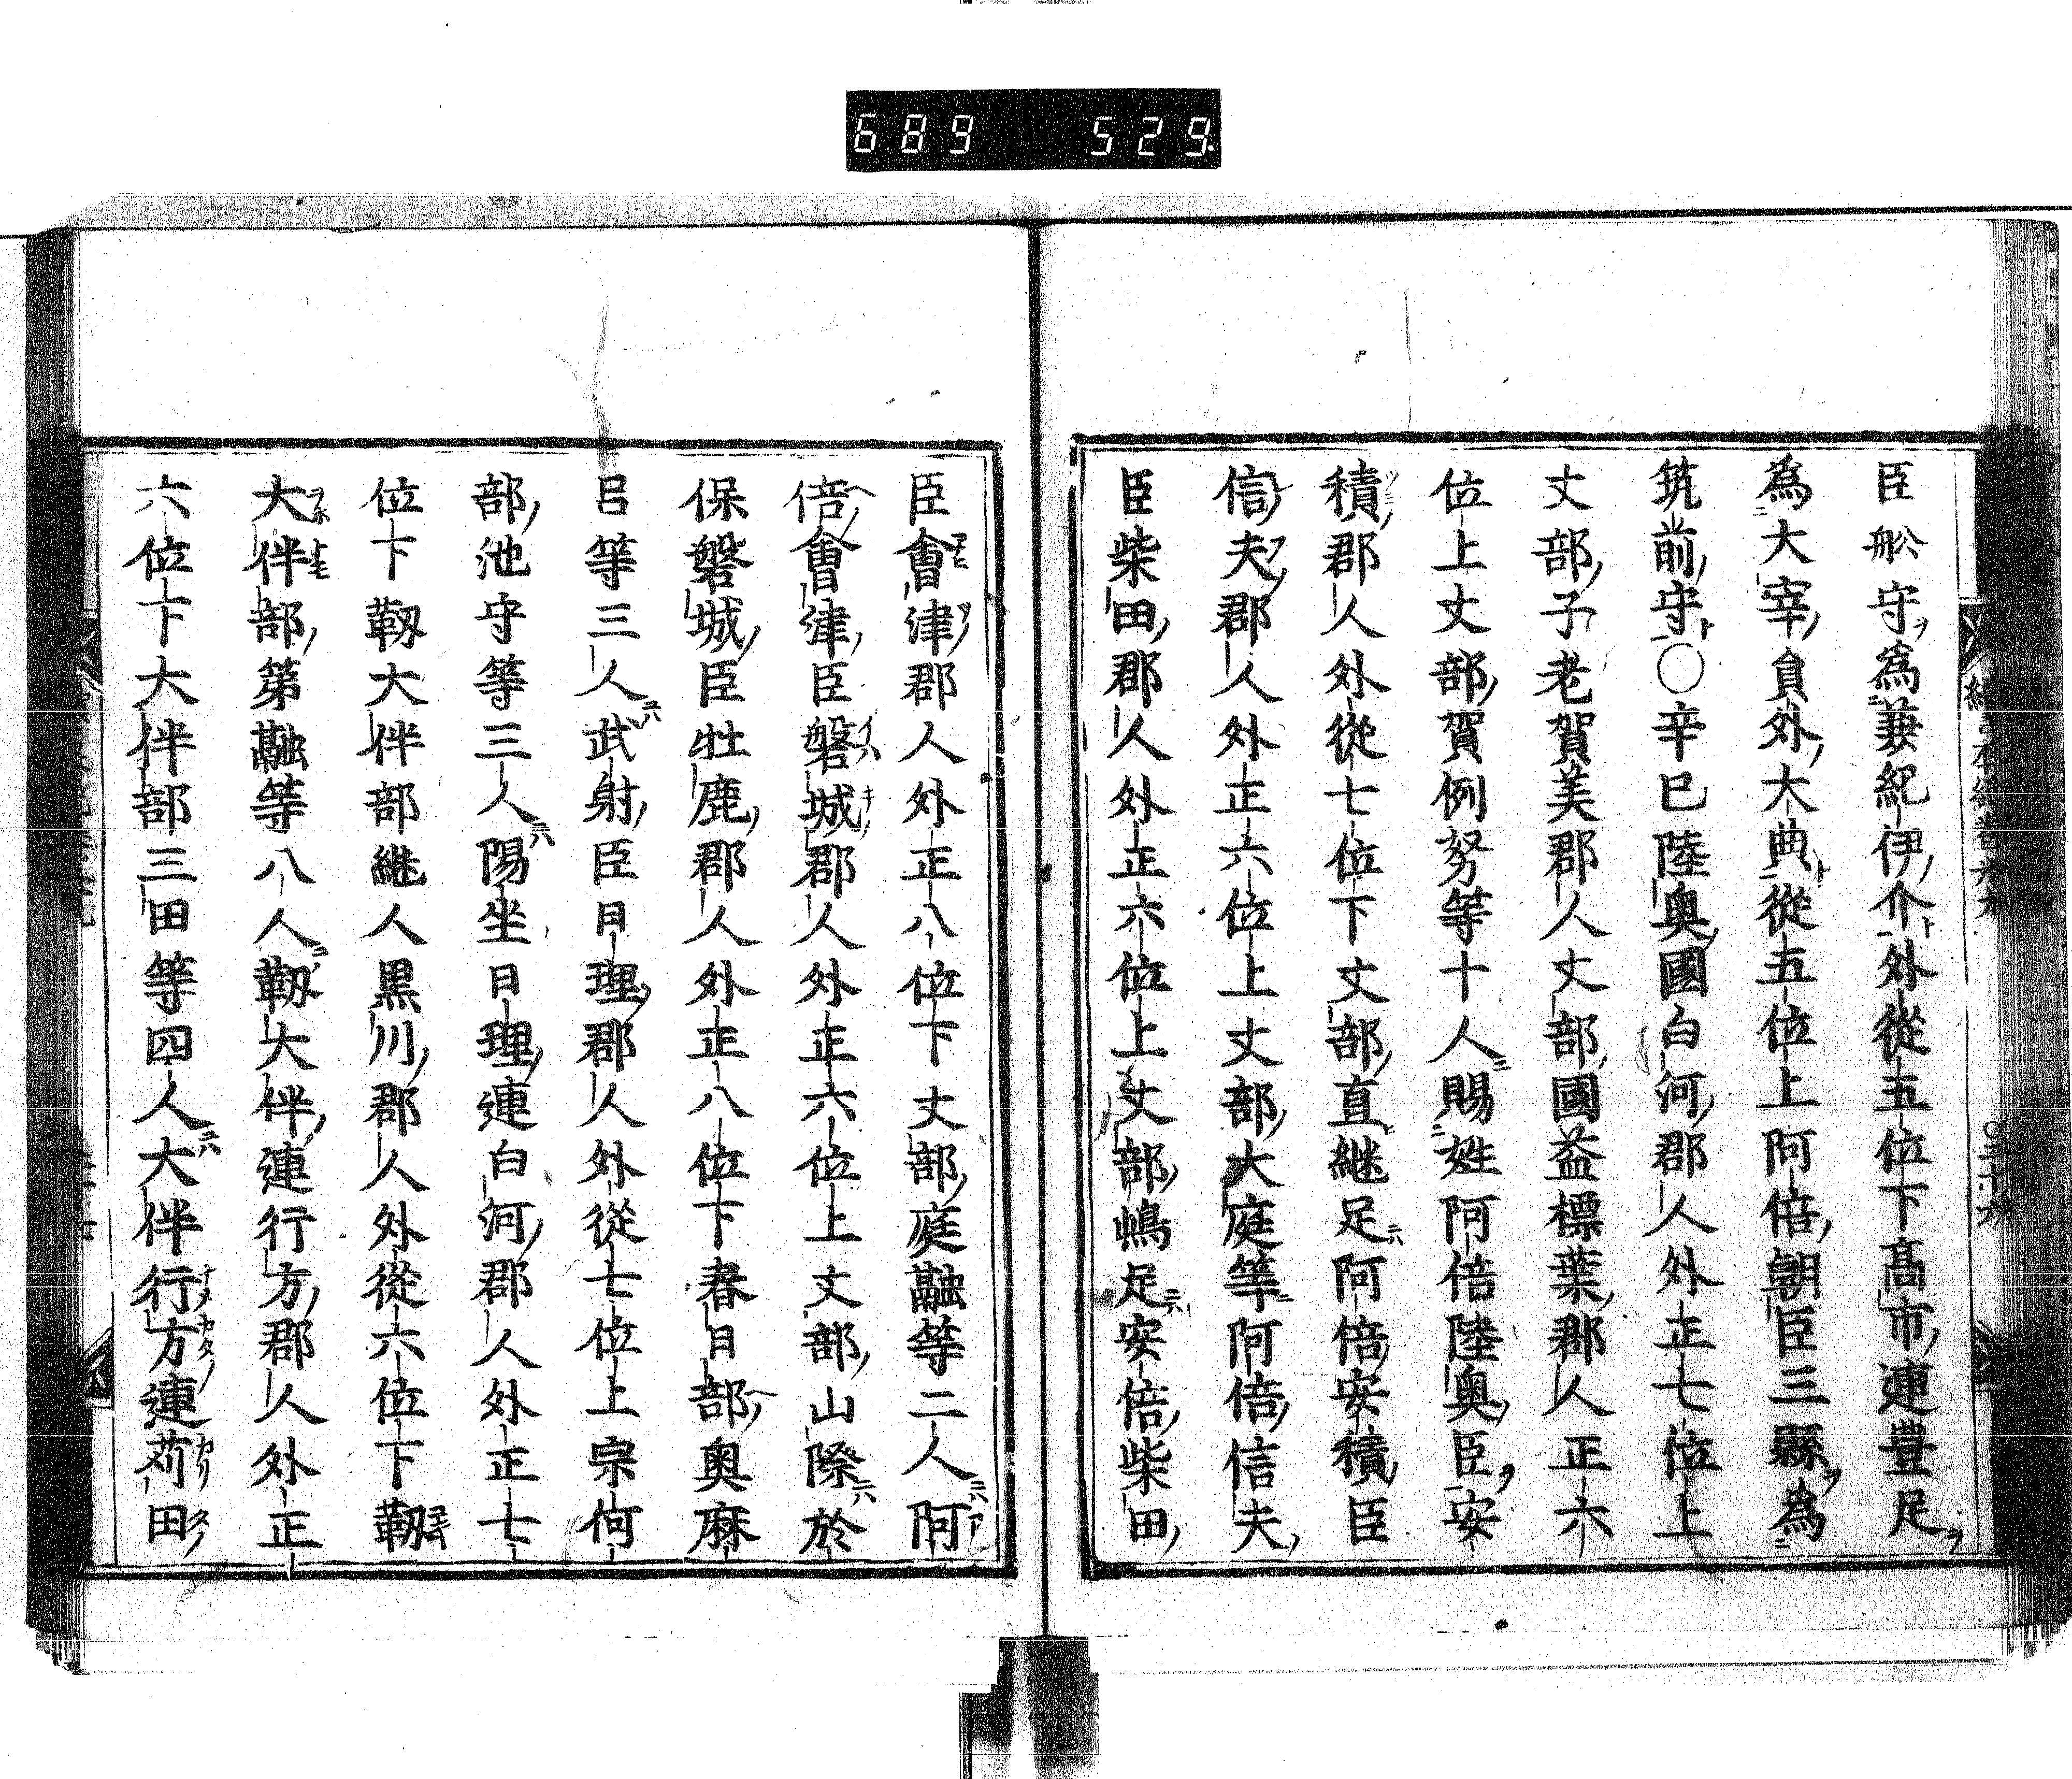 689 529
臣舩守為兼紀伊介外從五位下髙市連豊足
為大宰員外大典從五位上阿倍朝臣三縣為
筑前守○辛巳陸奥國白河郡人外正七位上
丈部子老賀美郡人丈部國益標葉郡人正六
位上丈部賀例努等十人賜姓阿倍陸奥臣安
積郡人外從七位下丈部直継足阿倍安積臣
信夫郡人外正六位上丈部大庭等阿倍信夫
臣柴田郡人外正六位上丈部嶋足安倍柴田
臣會津郡人外正八位下丈部庭融等二人阿
倍會津臣磐城郡人外正六位上丈部山際於
保磐城臣牡鹿郡人外正八位下春日部奥麻
呂等三人武射臣曰理郡人外從七位上宗何
部池守等三人陽坐曰理連白河郡人外正七
位下靱大伴部継人黒川郡人外從六位下靱
大伴部第融等八人靱大伴連行方郡人外正
六位下大伴部三田等四人大伴行方連苅田